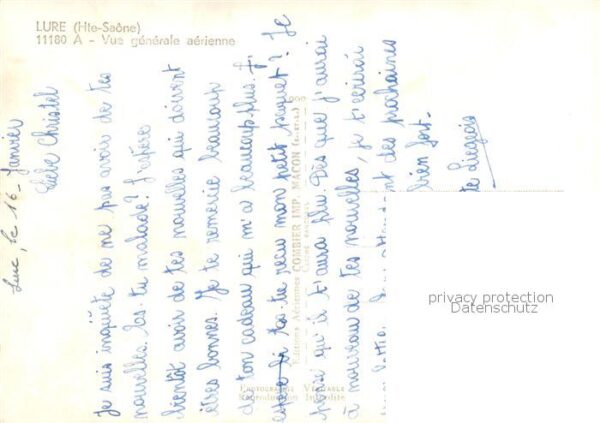 LURE (Hte-Saône)
11180 A - Vue générale aérienne
Lure, le 16 Janvier
Liebe Christel
Je suis inquiète de ne pas avoir de tes
nouvelles. Es-tu malade? J'espère
bientôt avoir de tes nouvelles qui doivent
êtres bonnes. Je te remercie beaucoup
de ton cadeau qui m'a beaucoup plus.
As-tu reçu mon petit paquet? Je
pense qu'il t'aura plu. Dès que j'aurai
à nouveau de tes nouvelles, je t'écrirai
des prochaines
bien fort.
Editions Aériennes COMBIER IMP. MACON
Photographie Véritable
Reproduction Interdite
privacy protection
Datenschutz